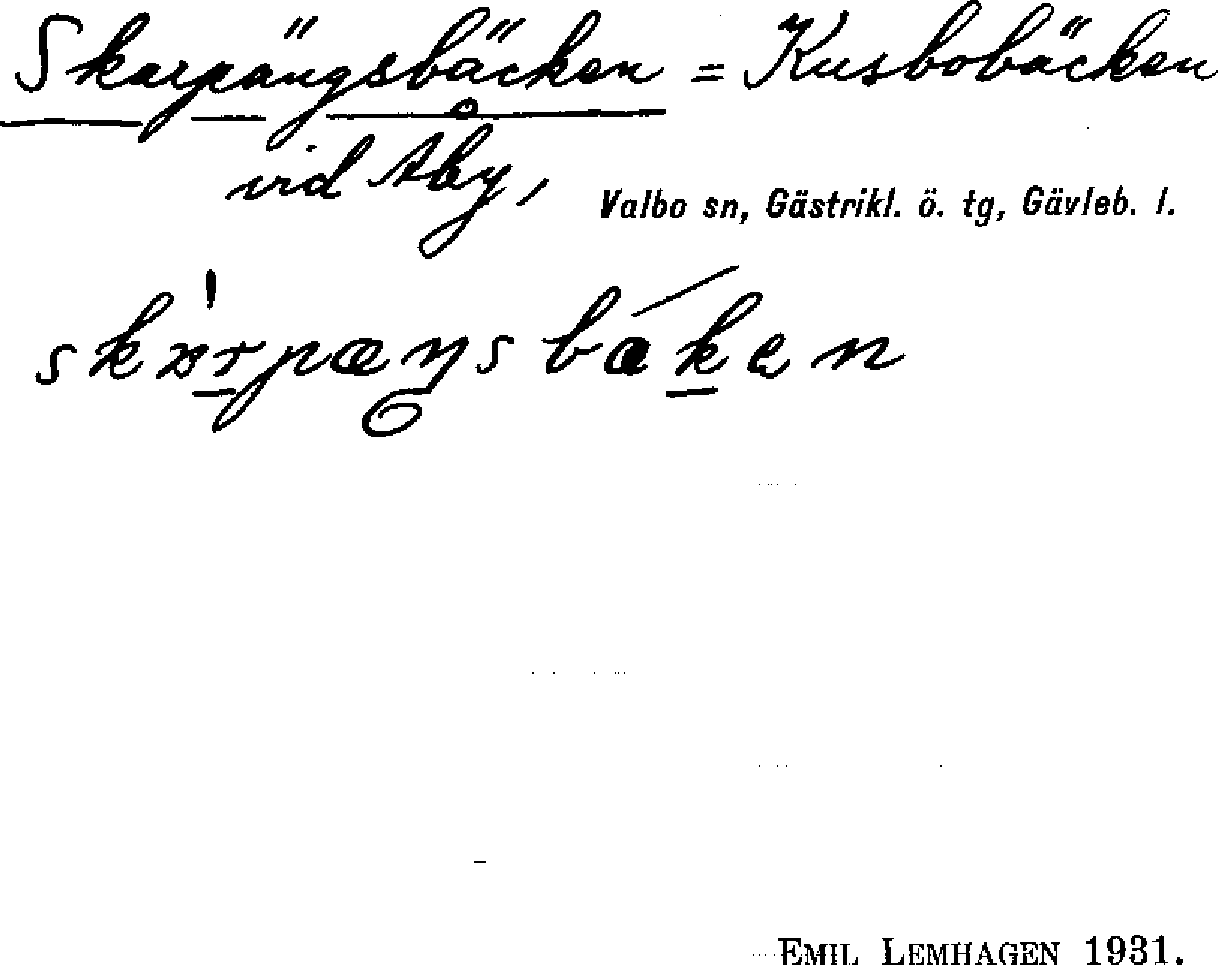 Skarpängsbäcken = Kusbobäcken
vid Åby, Valbo sn, Gästrikl. ö. tg, Gävleb. l.
EMIL LEMHAGEN 1931.